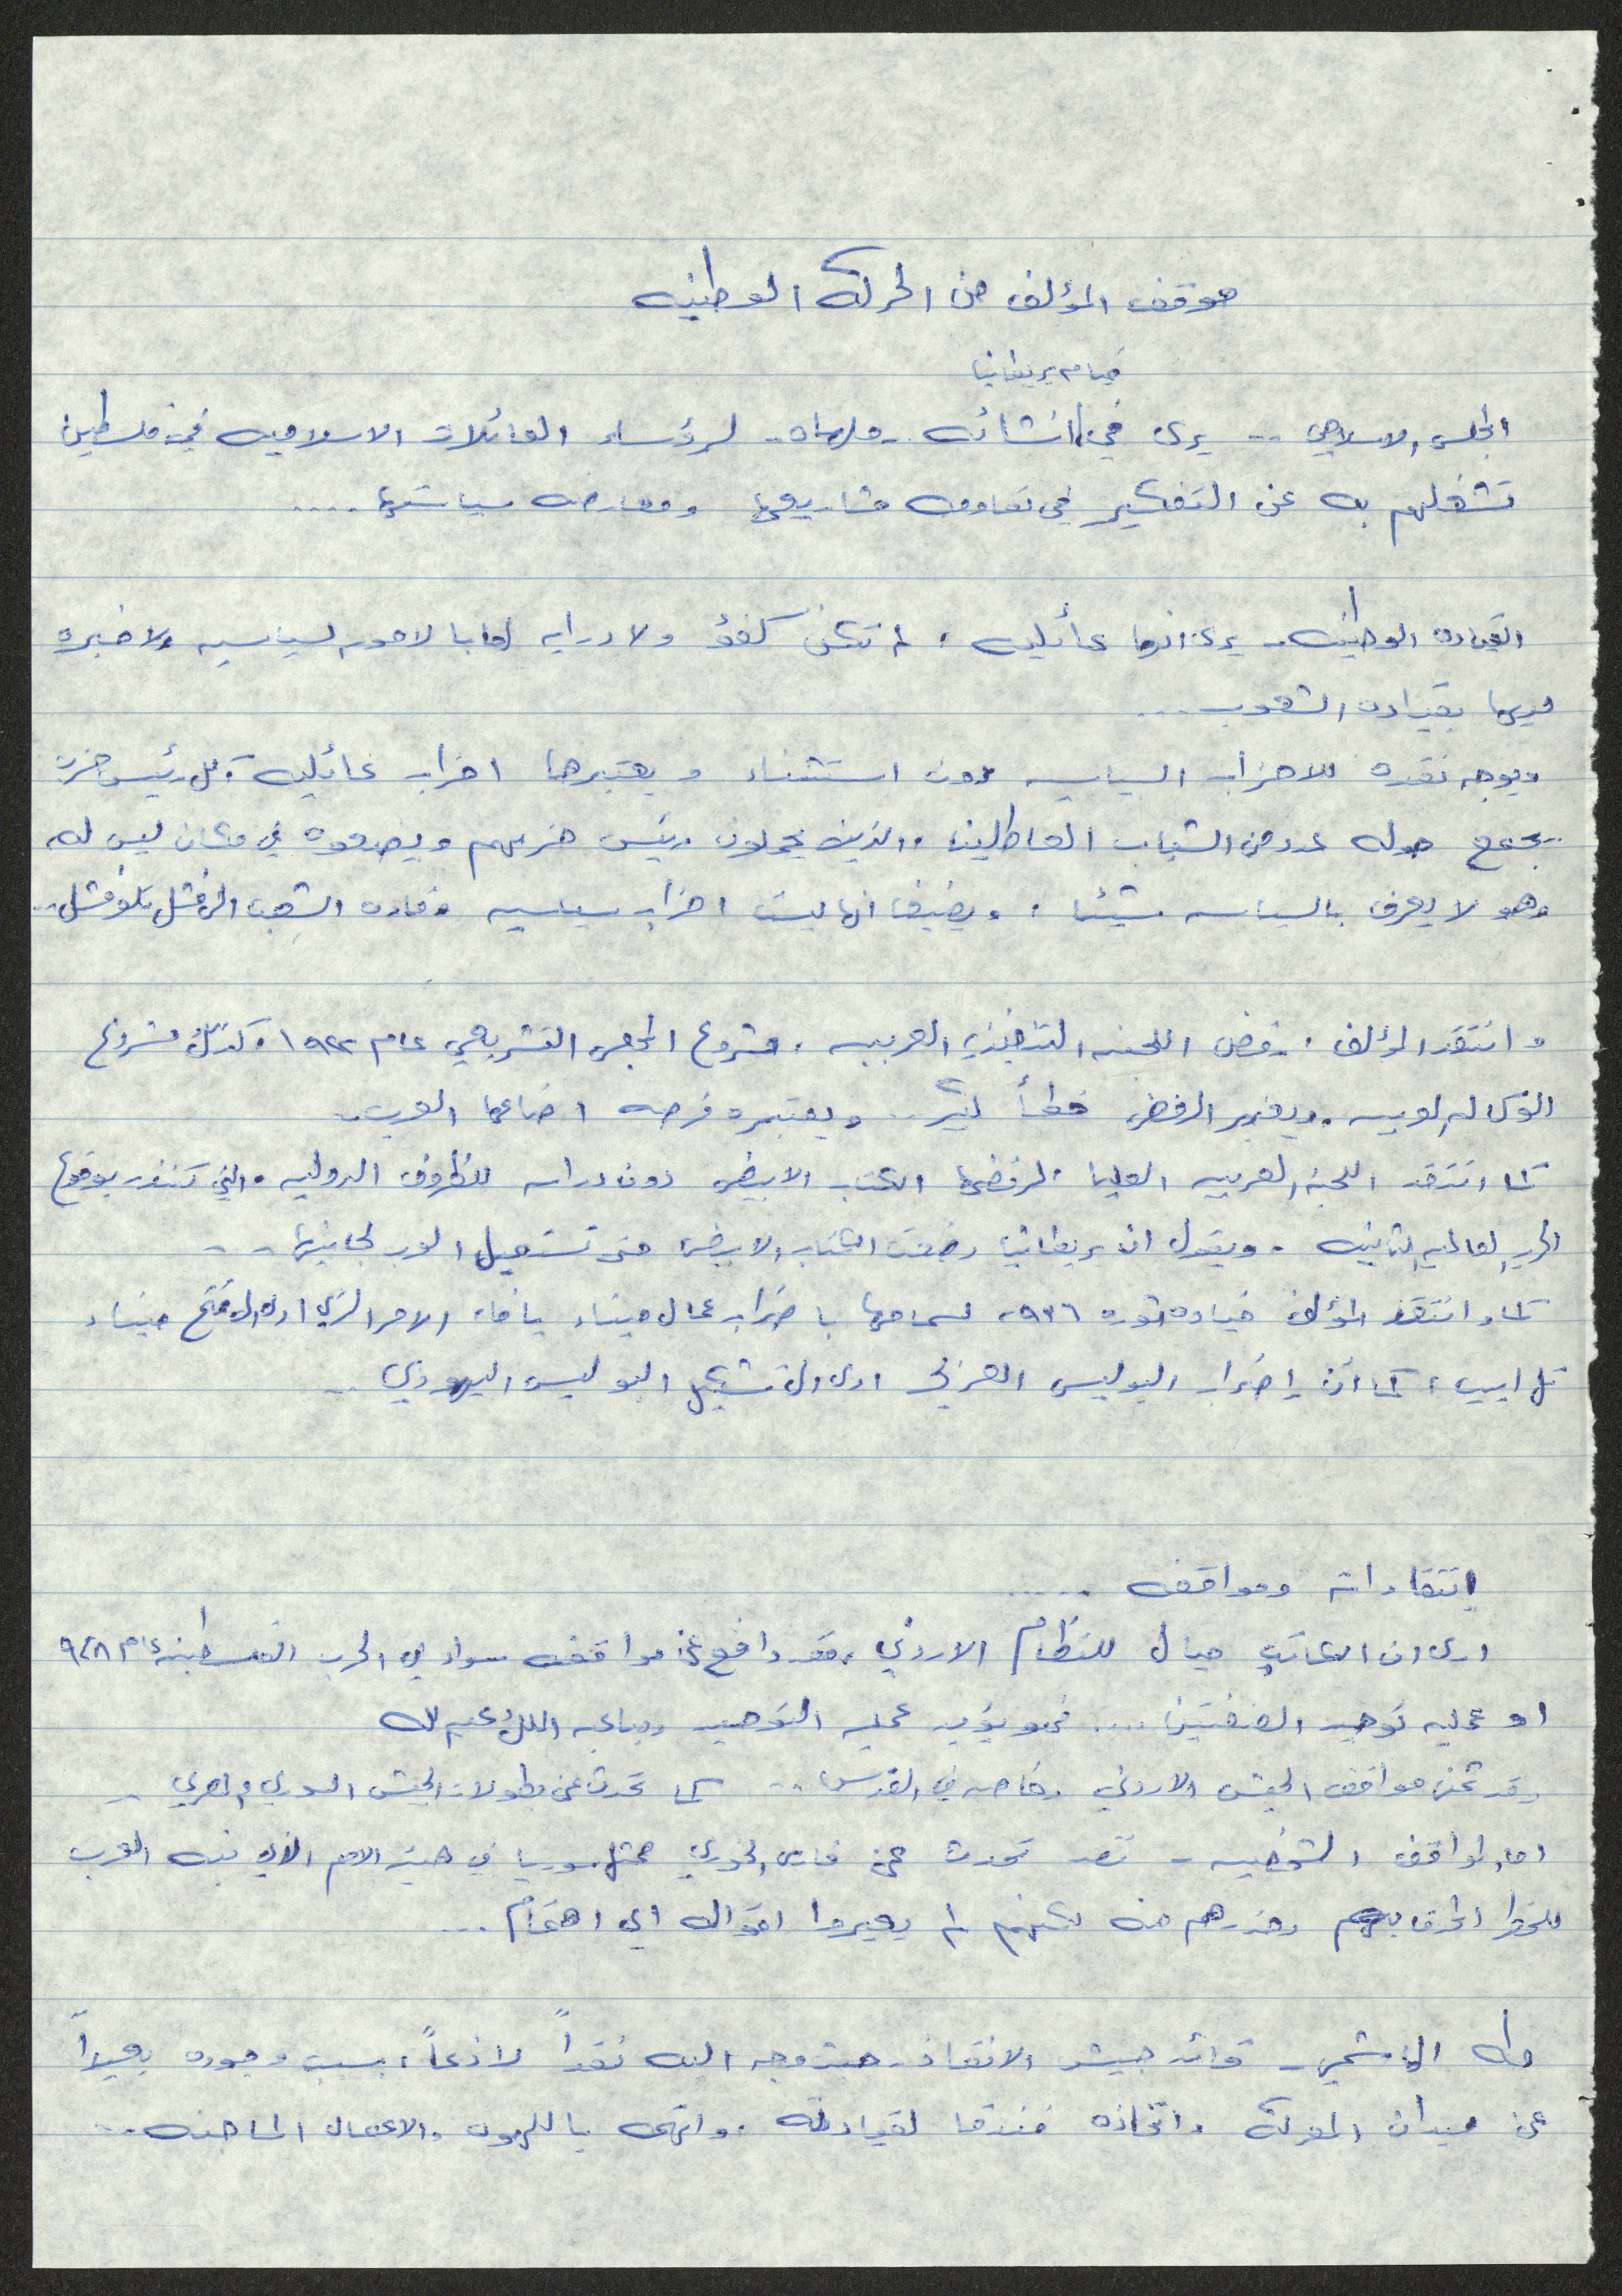 موقف المؤلف من الحركة الوطنيه
قيام بريطانيا
المجلس الاسلامي .. يرى في انشائه .. ملهاه .. لرؤساء العائلات الاسلاميه في فلسطين
تشغلهم به عن التفكير في تعاونه مشاريعها ومعارضه سياستها ....
القياده الوطنيه .. يرى انها عائليه ، لم تكن كفؤ ولا درايه لها بالامور السياسيه ولا خبره
لديها بقياده الشعوب ...
ويوجه نقده للاحزاب السياسيه دون استثناء ويعتبرها احزاب عائليه ، كل رئيس حزب
يجمع حوله عدد من الشباب العاطلين ، والذين يحملون رئيس حزبهم ويضعوه في مكان ليس له
وهو لا يعرف بالسياسه شيئا ، ويضيف انها ليست احزاب سياسيه وقاده الشعب الى فشل تلو فشل ..
وانتقد المؤلف ، رفض اللجنه التنفيذيه العربيه ، مشروع المجلس التشريعي عام ١٩٢٢ ، كذلك مشروع
الوكاله العربيه ، ويعتبر الرفض خطأ كبير .. ويعتبره فرصه اضاعها العرب ..
كما انتقد اللجنه العربيه العليا لرفضها الكتاب الابيض دون دراسه للظروف الدوليه ، التي كتنذر بوقوع
الحرب العالميه الثانيه . ويقول ان بريطانيا وضعت الكتاب الابيض حتى تستميل العرب لجانبها ..
كما وانتقد المؤلف قياده ثوره ٩٣٦ ، لسماحها باضراب عمال ميناء يافا ، الامر الذي ادى الى فتح ميناء
تل ابيب ، كما ان إضراب البوليس العربي ادى الى تشكيل البوليس اليهودي ..
إنتقاداته ومواقفه .....
ارى ان الكاتب ميال للنظام الاردني ، فقد دافع عن مواقفه سواء في الحرب الفلسطينيه عام ٩٤٨
او عمليه توحيد الضفتين .... فهو يؤيد عمليه التوحيد ومبايعه الملك زعيم له
وقد ثمن مواقف الجيش الاردني وخاصه في القدس .. كما تحدث عن بطولات الجيش السوري والمصري ..
اما المواقف الشخصيه - فقد تحدث عن فارس الخوري ممثل سوريا في هيئه الامم الذي نبه العرب
للخطر المحدق بهم وحذرهم منه لكنهم لم يعيروا اقواله اي اهتمام ...
طه الهاشمي - قائد جيش الانقاذ . حيث وجه اليه نقداً لاذعاً ، بسبب وجوده بعيداً
عن ميدان المعركة واتخاذه فندقا لقيادته ، واتهمه باللهو والاعمال الماجنه ..